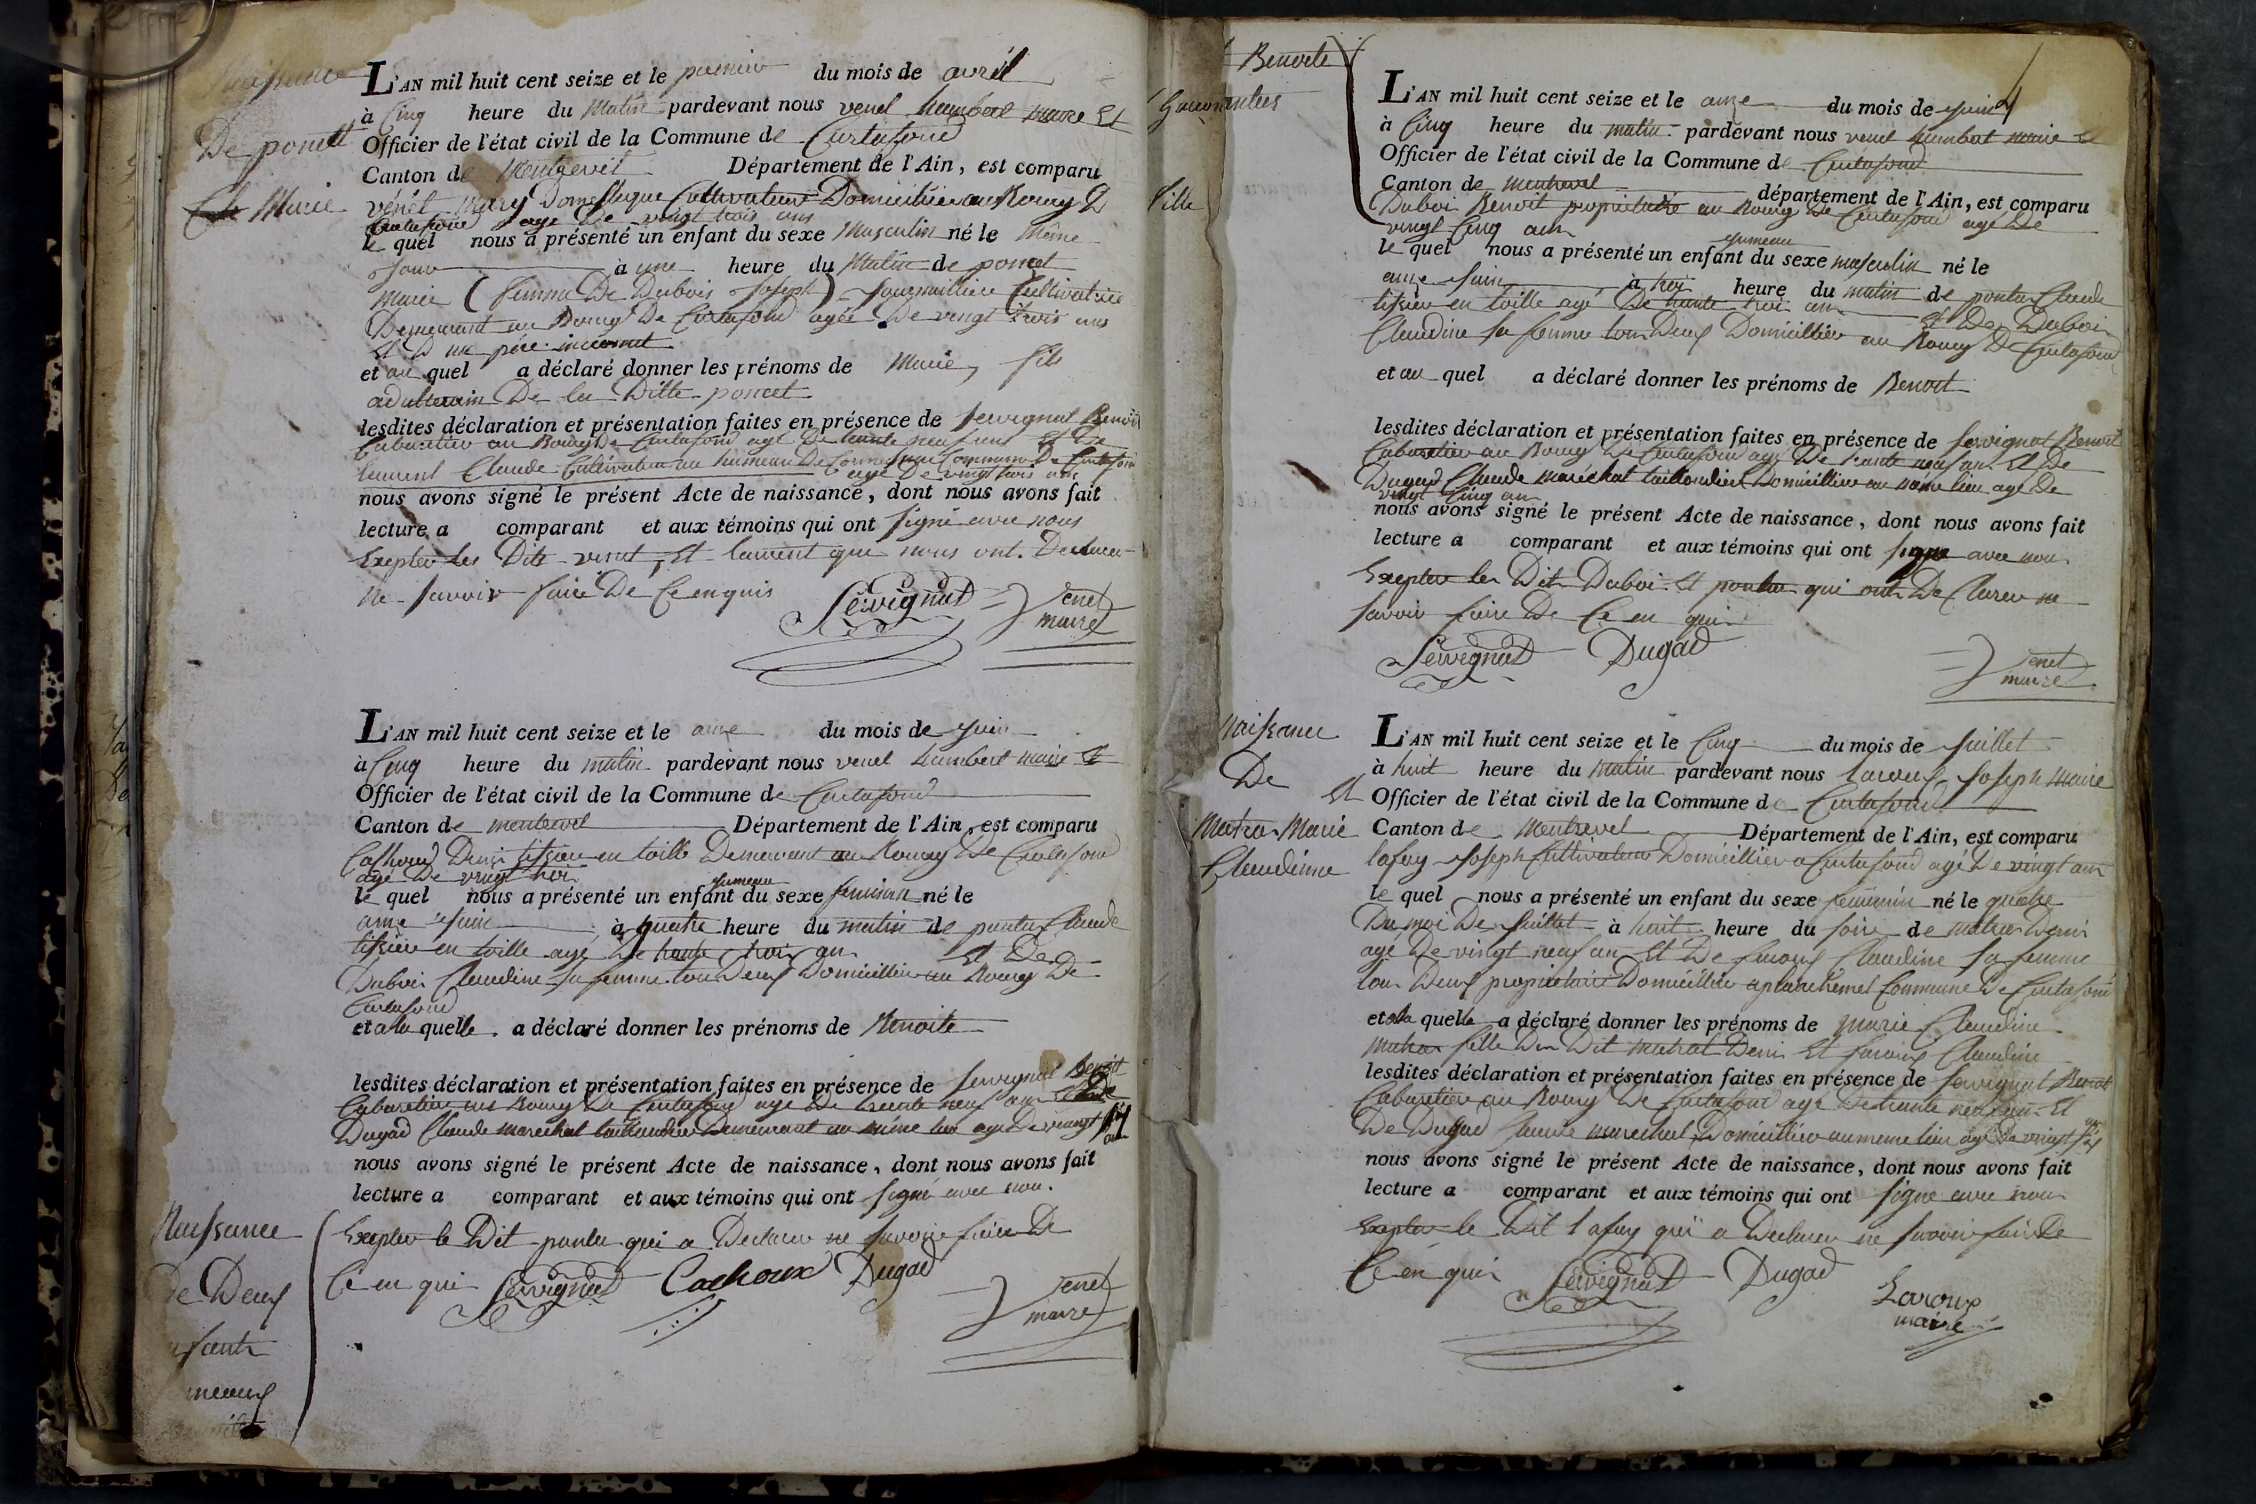 Naissance
De poncet
Marie
L'AN mil huit cent seize et le premier du mois de avril
à Cinq heure du Matin pardevant nous venet humbert maire Et
Officier de l'état civil de la Commune de Curtafond
Canton de Montrevel Département de l'Ain, est comparu
vénét Domestique Cultivateur Domicilier au Bourg De
Curtafond agé De vingt trois ans
le quel nous a présenté un enfant du sexe Masculin né le même
Jour à une heure du Matin de poncet
Marie (femme De Dubois Joseph) Journaillière Cultivatrice
Demeurant au Bourg De Curtafond agée De vingt trois ans
Et D'un pére inconnut
et au quel a déclaré donner les prénoms de Marie, fils
adulterain De la Ditte poncet
lesdites déclaration et présentation faites en présence de Servignat Benoit
Cabaretier au Bourg De Curtafond agé De trente neuf ans Et De
laurent Claude Cultivateur au hameau De Commune De Curtafond
agé De vingt trois ans
nous avons signé le présent Acte de naissance, dont nous avons fait
lecture a comparant et aux témoins qui ont signé avec nous
Exepter les Dits venet, Et laurent que nous ont Declarer
ne savoir faire De Ce enquis
Servignat Venet
maire
L'AN mil huit cent seize et le onze du mois de Juin
à Cinq heure du matin pardevant nous venet humbert maire Et
Officier de l'état civil de la Commune de Curtafond
Canton de montrevel Département de l'Ain, est comparu
Cathoux Denis tissieu en toille Demeurant au Bourg De Curtafond
agé De vingt troi
jumeau
le quel nous a présenté un enfant du sexe feminin né le
onze Juin à quatre heure du matin de Claude
tissieu en toille agé De trente troi an Et De
Duboi Claudine sa femme tou Deux Domicillier au Bourg De
Curtafond
et a la quelle a déclaré donner les prénoms de Benoite
lesdites déclaration et présentation faites en présence de Servignat Benoit
Cabaretier au Bourg De Curtafond agé De trente neuf an Et De
Dugad Claude marechal taillandier Demeurant au même lieu agé De vingt
nous avons signé le présent Acte de naissance, dont nous avons fait
lecture a comparant et aux témoins qui ont signé avec nou.
Naissance
de Deux
enfants
jumeaux
Exepter le Dit qui a Declarer ne savoir faire De
Ce en qui Servignat Cathoux Dugad Venet
maire
Benoite
L'AN mil huit cent seize et le onze du mois de Juin
à Cinq heure du matin pardevant nous venet humbert maire Et
Officier de l'état civil de la Commune de Curtafond
Canton de montrevel département de l'Ain, est comparu
fille
Duboi Benoit proprietaire au Bourg De Curtafond agé De
vingt Cinq an
jumeau
le quel nous a présenté un enfant du sexe masculin né le
onze Juin à troi heure du matin de Claude
tissieu en toille agé De trente troi an Et De Duboi
Claudine sa femme tou Deux Domicillier au Bourg De Curtafond
et au quel a déclaré donner les prénoms de Benoit
lesdites déclaration et présentation faites en présence de Servignat Benoit
Cabaretier au Bourg De Curtafond agé De trente neuf an Et De
Dugad Claude maréchal taillandier Domicillier au même lieu agé De
vingt Cinq an
nous avons signé le présent Acte de naissance, dont nous avons fait
lecture a comparant et aux témoins qui ont signé avec nou
Exepter les Dits Duboi Et qui ont Declarer ne
savoir faire De Ce en qui
Servignat Dugad
Venet
maire
Naissance
De
Marie
Claudinne
L'AN mil huit cent seize et le Cinq du mois de Juillet
à huit heure du Matin pardevant nous Laroux Joseph Maire
Et Officier de l'état civil de la Commune de Curtafond
Canton de Montrevel Département de l'Ain, est comparu
lafay Joseph Cultivateur Domicillier a Curtafond agé De vingt an
le quel nous a présenté un enfant du sexe feminin né le quatre
Du moi De Juillet à huit heure du soir de Deni
agé De vingt neuf an Et De Claudine sa femme
tou Deux proprietaire Domicillier Commune De Curtafond
et a la quelle a déclaré donner les prénoms de Marie Claudine
fille Du Dit Deni Et Claudine
lesdites déclaration et présentation faites en présence de Servignat Benoit
Cabaretier au Bourg De Curtafond agé De trente neuf an Et
De Dugad Claude marechal Domicillier au meme lieu agé De vingt
nous avons signé le présent Acte de naissance, dont nous avons fait
lecture a comparant et aux témoins qui ont signe avec nou
Exepter le Dit lafay qui a Declarer ne savoir faire De
Ce en qui Servignat Dugad
Laroux
maire